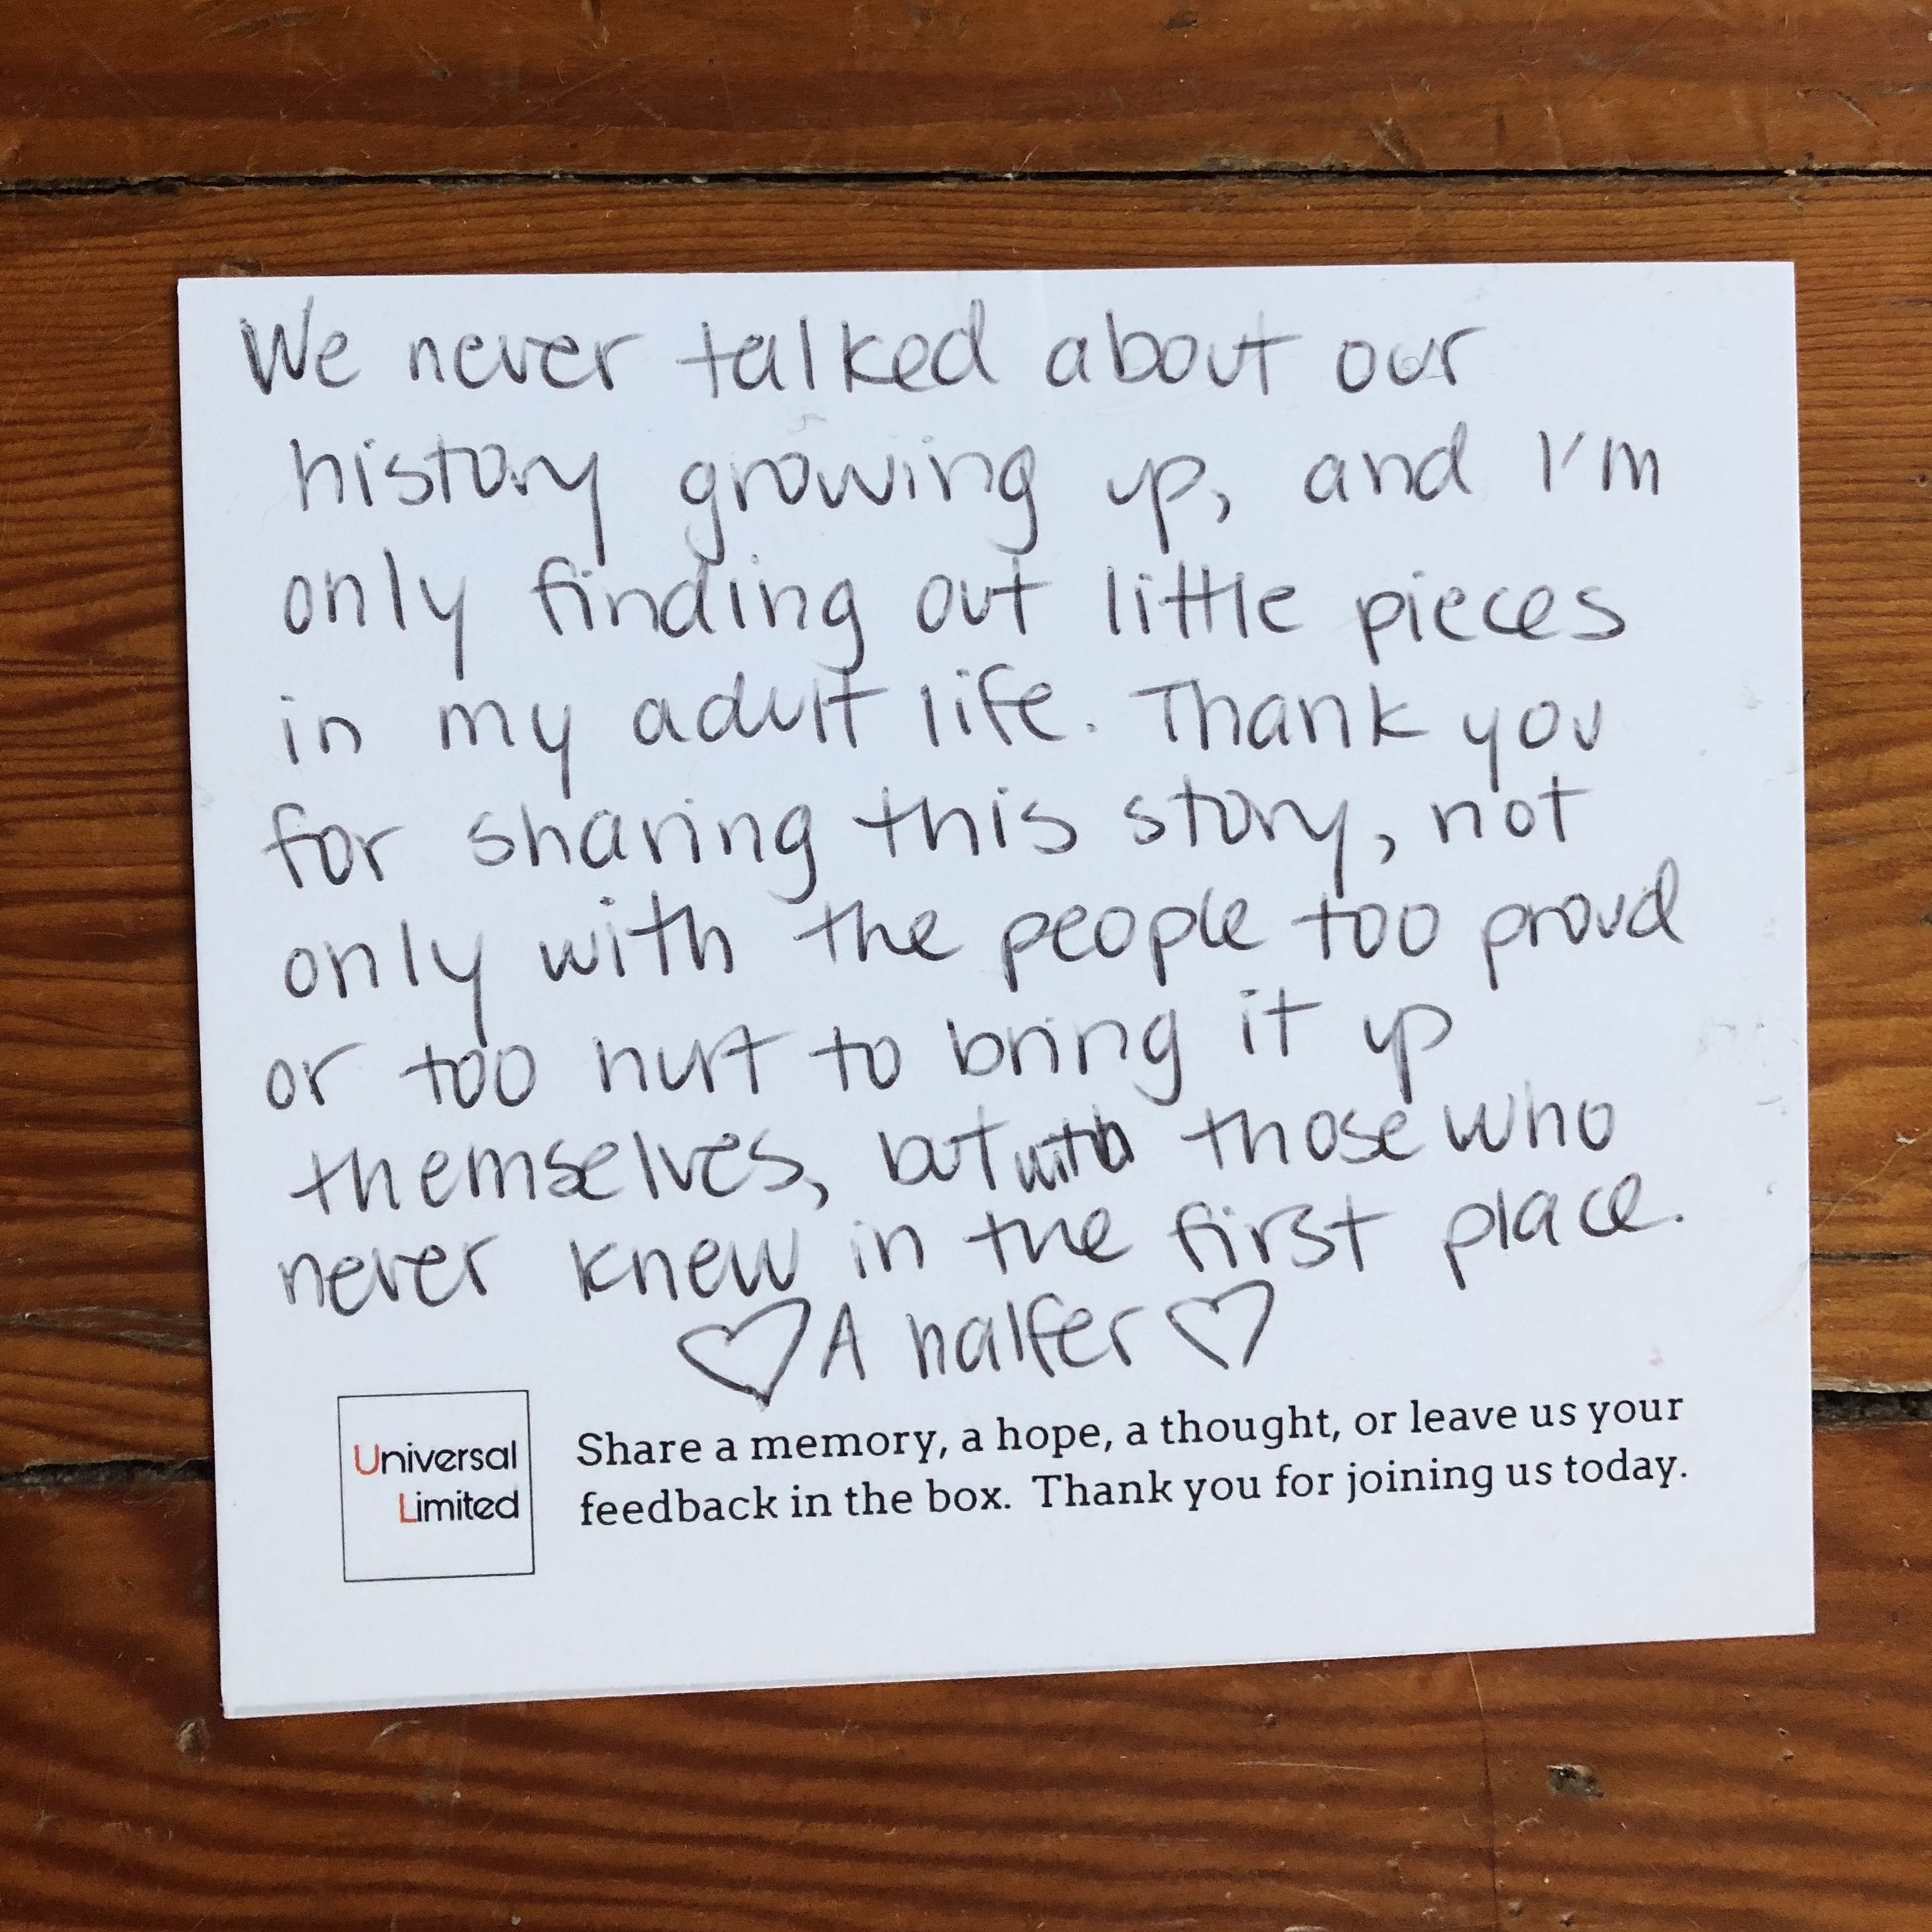 We never talked about our
history growing up, and I'm
only finding out little pieces
in my adult life. Thank you
for sharing this story, not
only with the people too proud
or too hurt to bring it up
themselves, but with those who
never knew in the first place.
♡ A halfer ♡
Universal
Limited
Share a memory, a hope, a thought, or leave us your
feedback in the box. Thank you for joining us today.